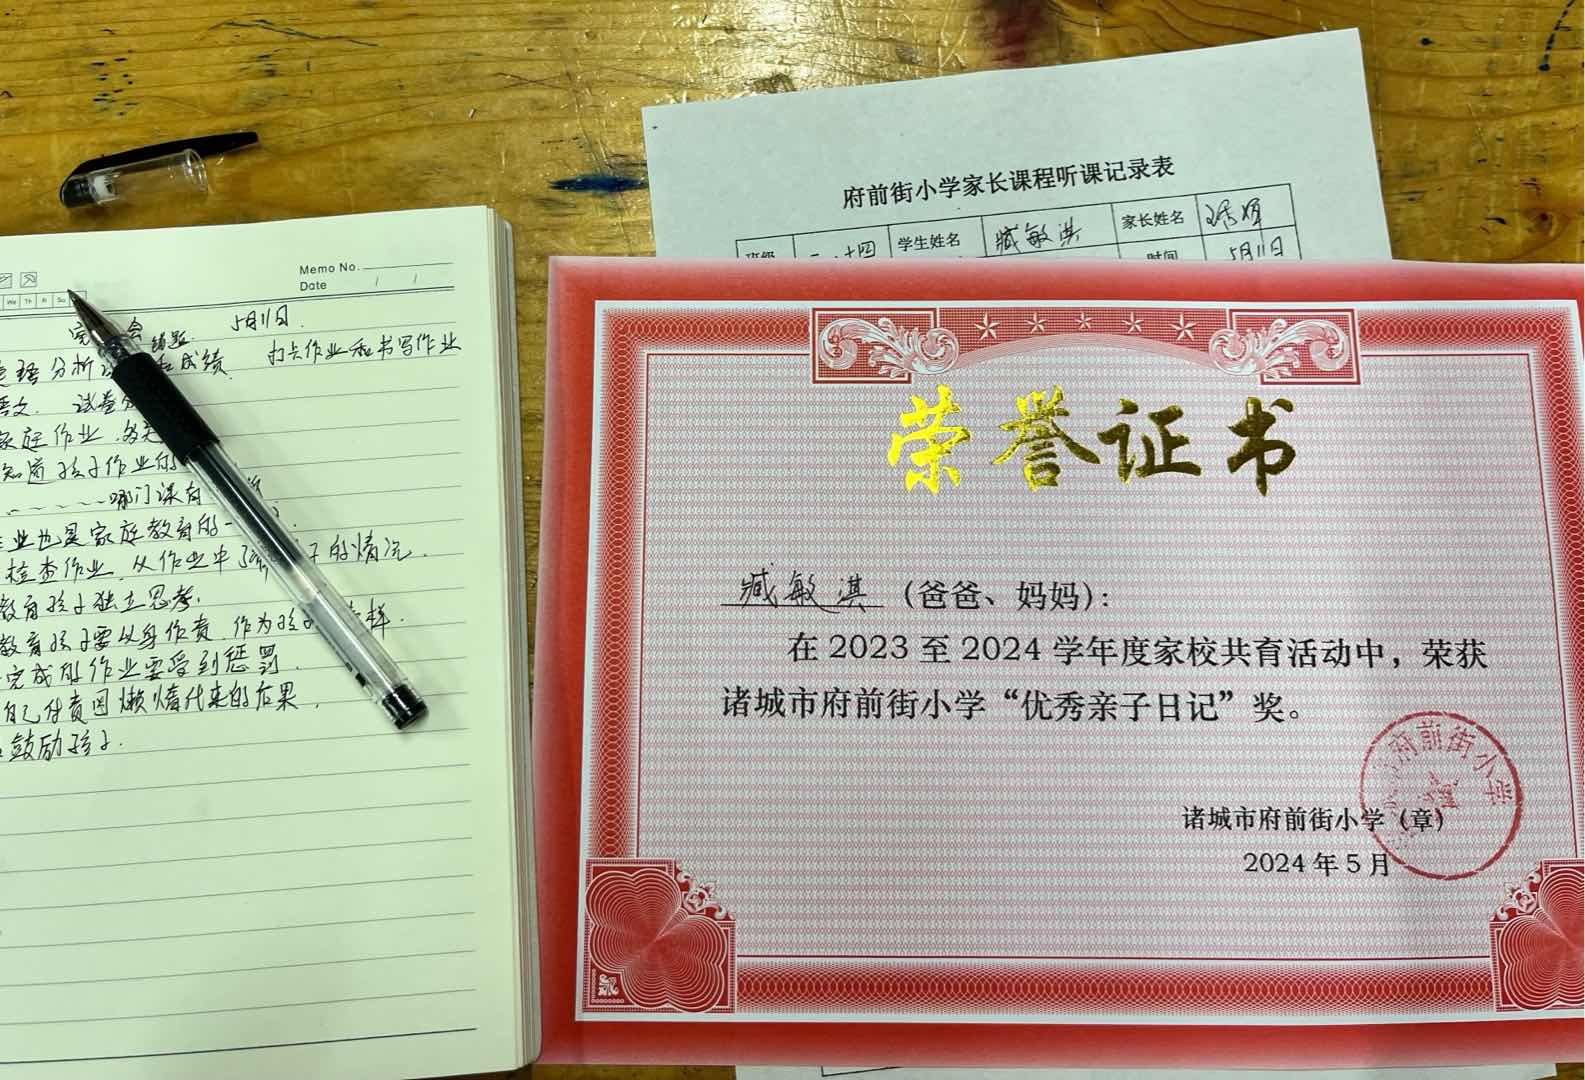 Memo No.
Date / /
We Th Fr Sa Su
5月11日.
错题
分析 成绩. 打卡作业和书写作业
语文. 试卷分
家庭作业.
知道孩子作业的
哪门课有
作业也是家庭教育的一
检查作业, 从作业中了解孩子的情况.
教育孩子独立思考.
教育孩子要以身作责, 作为孩子 榜样.
完成的作业要受到惩罚.
自己付责因懒惰代来的后果.
鼓励孩子.
府前街小学家长课程听课记录表
班级 二.十四 学生姓名 臧敏淇 家长姓名
时间 5月11日
荣誉证书
臧敏淇（爸爸、妈妈）:
在 2023 至 2024 学年度家校共育活动中，荣获
诸城市府前街小学“优秀亲子日记”奖。
诸城市府前街小学（章）
2024 年 5 月
府前街小学